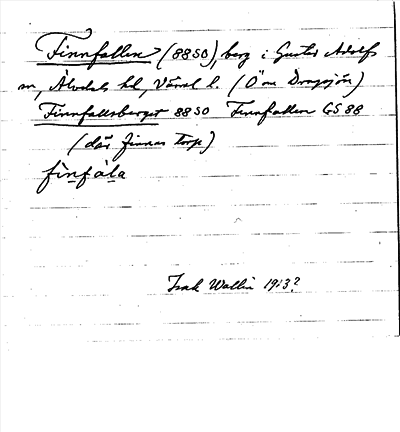 Finnfallen (8850), berg i Gustav Adolfs
sn, Älvdals hd, Värml l. (Ö om Dragsjön)
Finnfallsberget 8850 Finnfallen GS 88
(där finnas torp)
fi̇̀nfàla
Isak Wallin 1913?